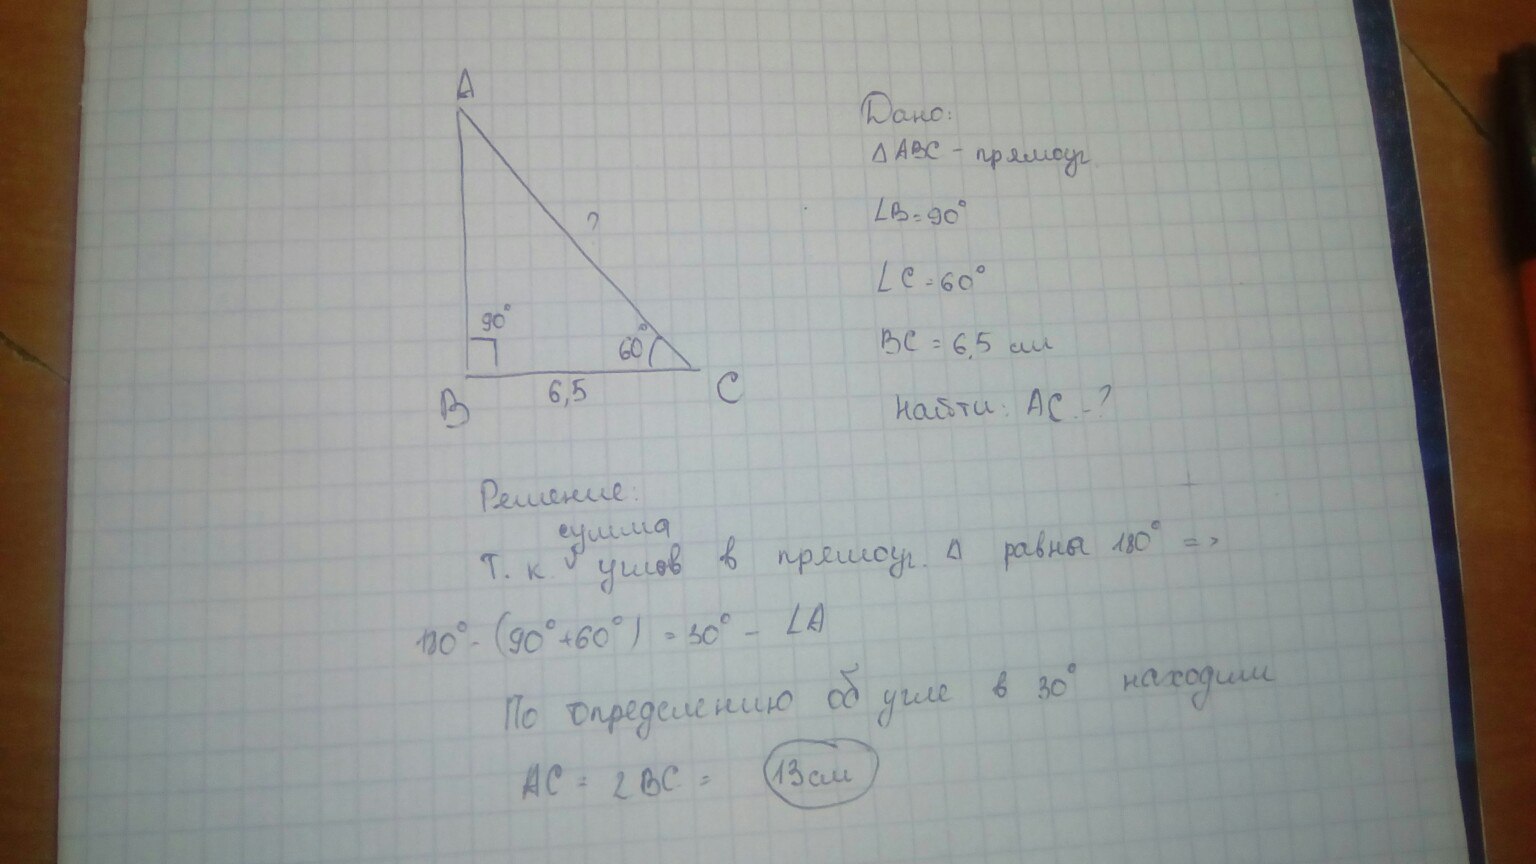 A
?
90°
60°
B
6,5
C
Дано:
Δ ABC - прямоуг.
∠B=90°
∠C=60°
BC = 6,5 см
Найти: AC - ?
Решение:
сумма
Т. к. углов в прямоуг. Δ равны 180° =>
180° - (90°+60°) = 30° - ∠A
По определению об угле в 30° находим
AC = 2BC = 13 см